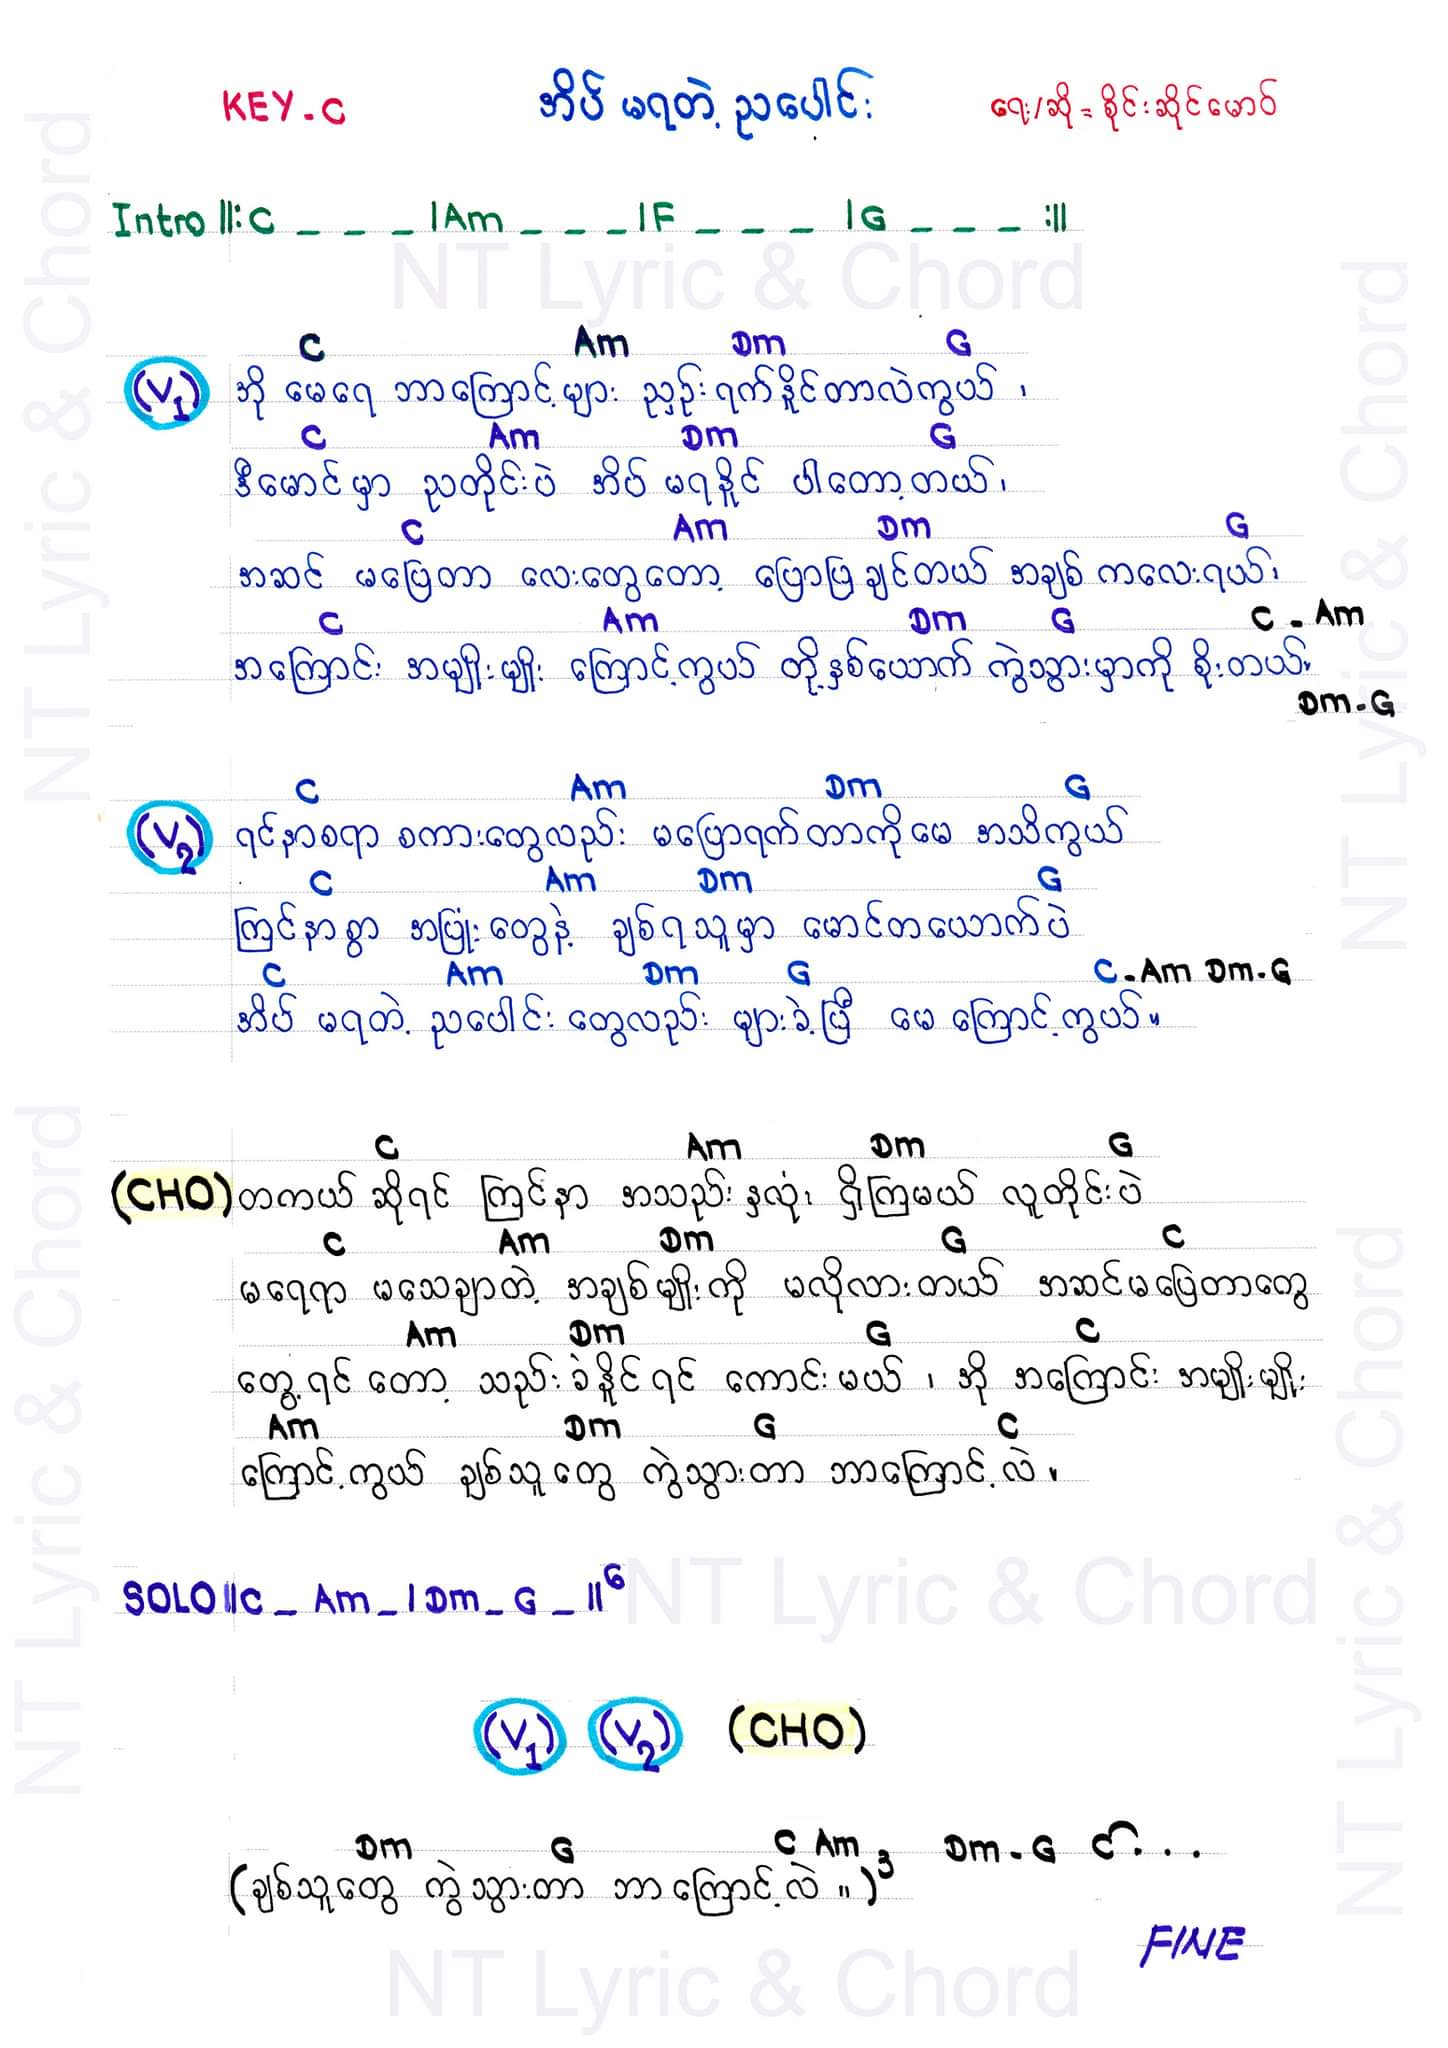 KEY-C အိပ်မရတဲ့ညပေါင်း ရေး/ဆို = စိုင်းဆိုင်မောဝ်
Intro ||: C _ _ _ | Am _ _ _ | F _ _ _ | G _ _ _ :||
NT Lyric & Chord
C Am Dm G
(V1) အို မေရေ ဘာကြောင့်များ ညှဉ်းရက်နိုင်တာလဲကွယ် ၊
C Am Dm G
ဒီမောင်မှာ ညတိုင်းပဲ အိပ်မရနိုင် ပါတော့တယ်၊
C Am Dm G
အဆင် မပြေတာ လေးတွေတော့ ပြောပြချင်တယ် အချစ်ကလေးရယ်၊
C Am Dm G C - Am
အကြောင်း အမျိုးမျိုး ကြောင့်ကွယ် တို့နှစ်ယောက် ကွဲသွားမှာကို စိုးတယ်။
Dm-G
C Am Dm G
(V2) ရင်နာစရာ စကားတွေလည်း မပြောရက်တာကို မေ အသိကွယ်
C Am Dm G
ကြင်နာစွာ အပြုံးတွေနဲ့ ချစ်ရသူမှာ မောင်တယောက်ပဲ
C Am Dm G C-Am Dm-G
အိပ်မရတဲ့ ညပေါင်းတွေလည်း များခဲ့ပြီ မေ ကြောင့်ကွယ်။
C Am Dm G
(CHO) တကယ်ဆိုရင် ကြင်နာ အသည်းနှလုံး ရှိကြမယ် လူတိုင်းပဲ
C Am Dm G C
မရေရာ မသေချာတဲ့ အချစ်မျိုးကို မလိုလားတယ် အဆင်မပြေတာတွေ
Am Dm G C
တွေ့ရင်တော့ သည်းခံနိုင်ရင် ကောင်းမယ် ၊ အို အကြောင်း အမျိုးမျိုး
Am Dm G C
ကြောင့်ကွယ် ချစ်သူတွေ ကွဲသွားတာ ဘာကြောင့်လဲ ။
SOLO || C _ Am _ | Dm _ G _ ||6
NT Lyric & Chord
(V1) (V2) (CHO)
Dm G C Am Dm-G C...
(ချစ်သူတွေ ကွဲသွားတာ ဘာကြောင့်လဲ ။)3
FINE
NT Lyric & Chord
NT Lyric & Chord
NT Lyric & Chord
NT Lyric & Chord
NT Lyric & Chord